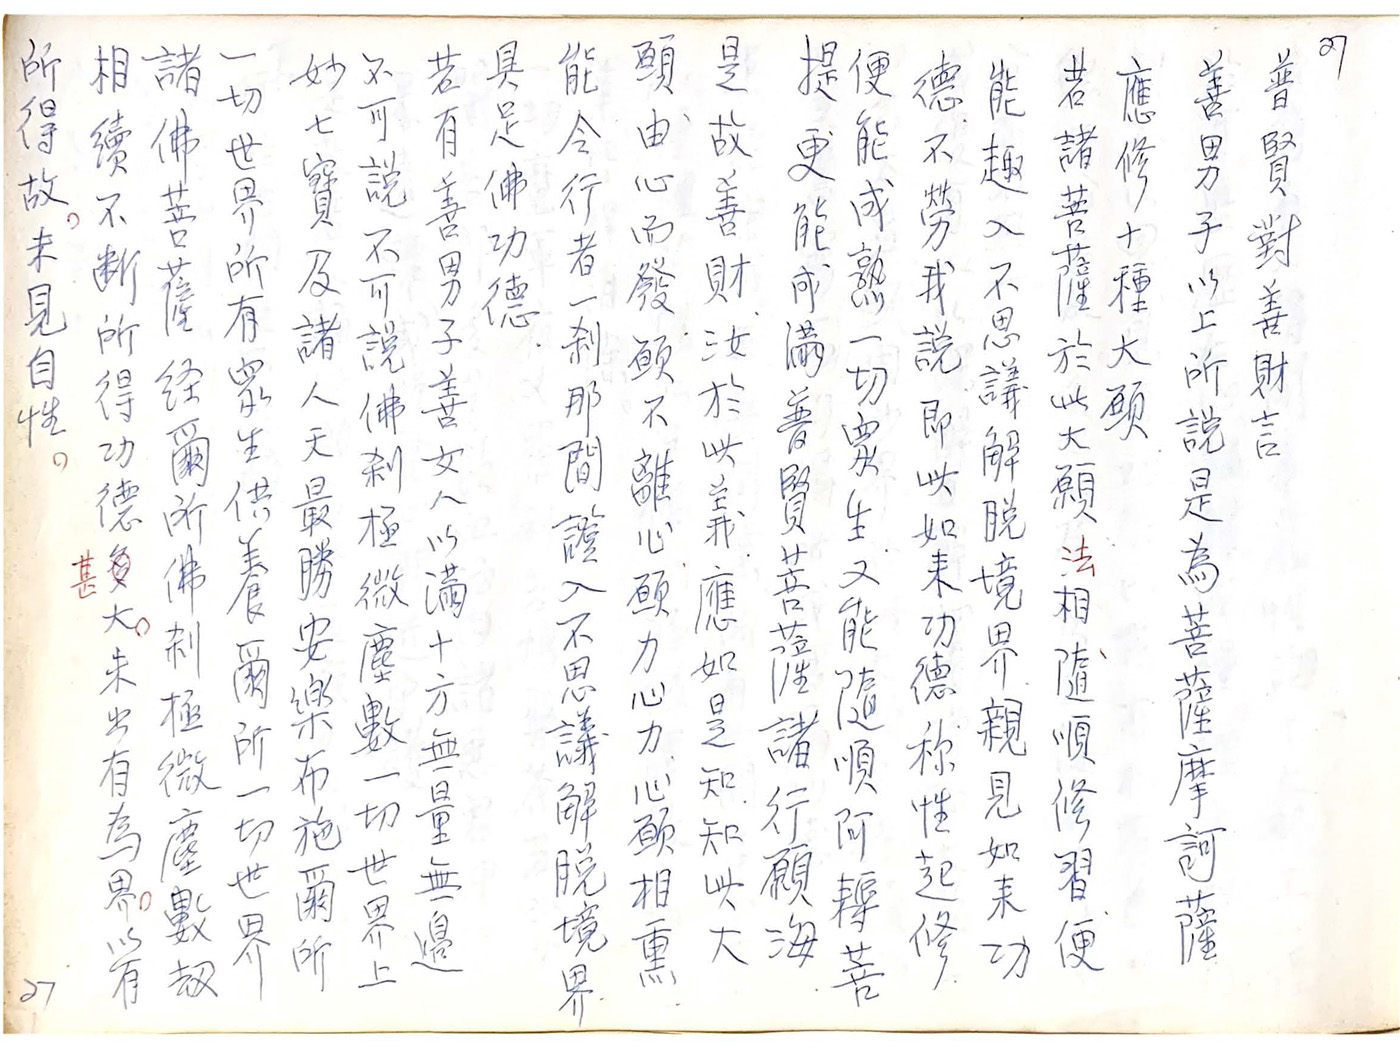 27
普賢對善財言
善男子以上所説是為菩薩摩訶薩
應修十種大願
若諸菩薩於此大願法相隨順修習便
能趣入不思議解脱境界親見如来功
德不勞我説即此如来功德称性起修
便能成熟一切眾生又能隨順阿耨菩
提更能成滿普賢菩薩諸行願海
是故善財汝於此義應如是知知此大
願由心而發願不離心願力心力心願相熏
能令行者一刹那間證入不思議解脱境界
具足佛功德
若有善男子善女人以滿十方無量無邊
不可説不可説佛刹極微塵數一切世界上
妙七寶及諸人天最勝安樂布施爾所
一切世界所有眾生供養爾所一切世界
諸佛菩薩経爾所佛刹極微塵數劫
相續不断所得功德甚大。未出有為界。以有
所得故。未見自性。
27